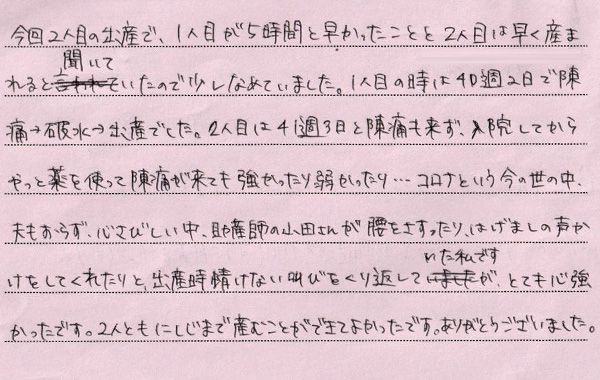 今回2人目の出産で、1人目が5時間と早かったことと2人目は早く産ま
聞いて
れると言われていたので少しなめていました。1人目の時は40週2日で陣
痛→破水→出産でした。2人目は41週3日と陣痛も来ず、入院してから
やっと薬を使って陣痛が来ても強かったり弱かったり…コロナという今の世の中、
夫もおらず、心さびしい中、助産師の小田さんが腰をさすったり、はげましの声か
いた私です
けをしてくれたりと、出産時情けない叫びをくり返していましたが、とても心強
かったです。2人ともにしじまで産むことができてよかったです。ありがとうございました。